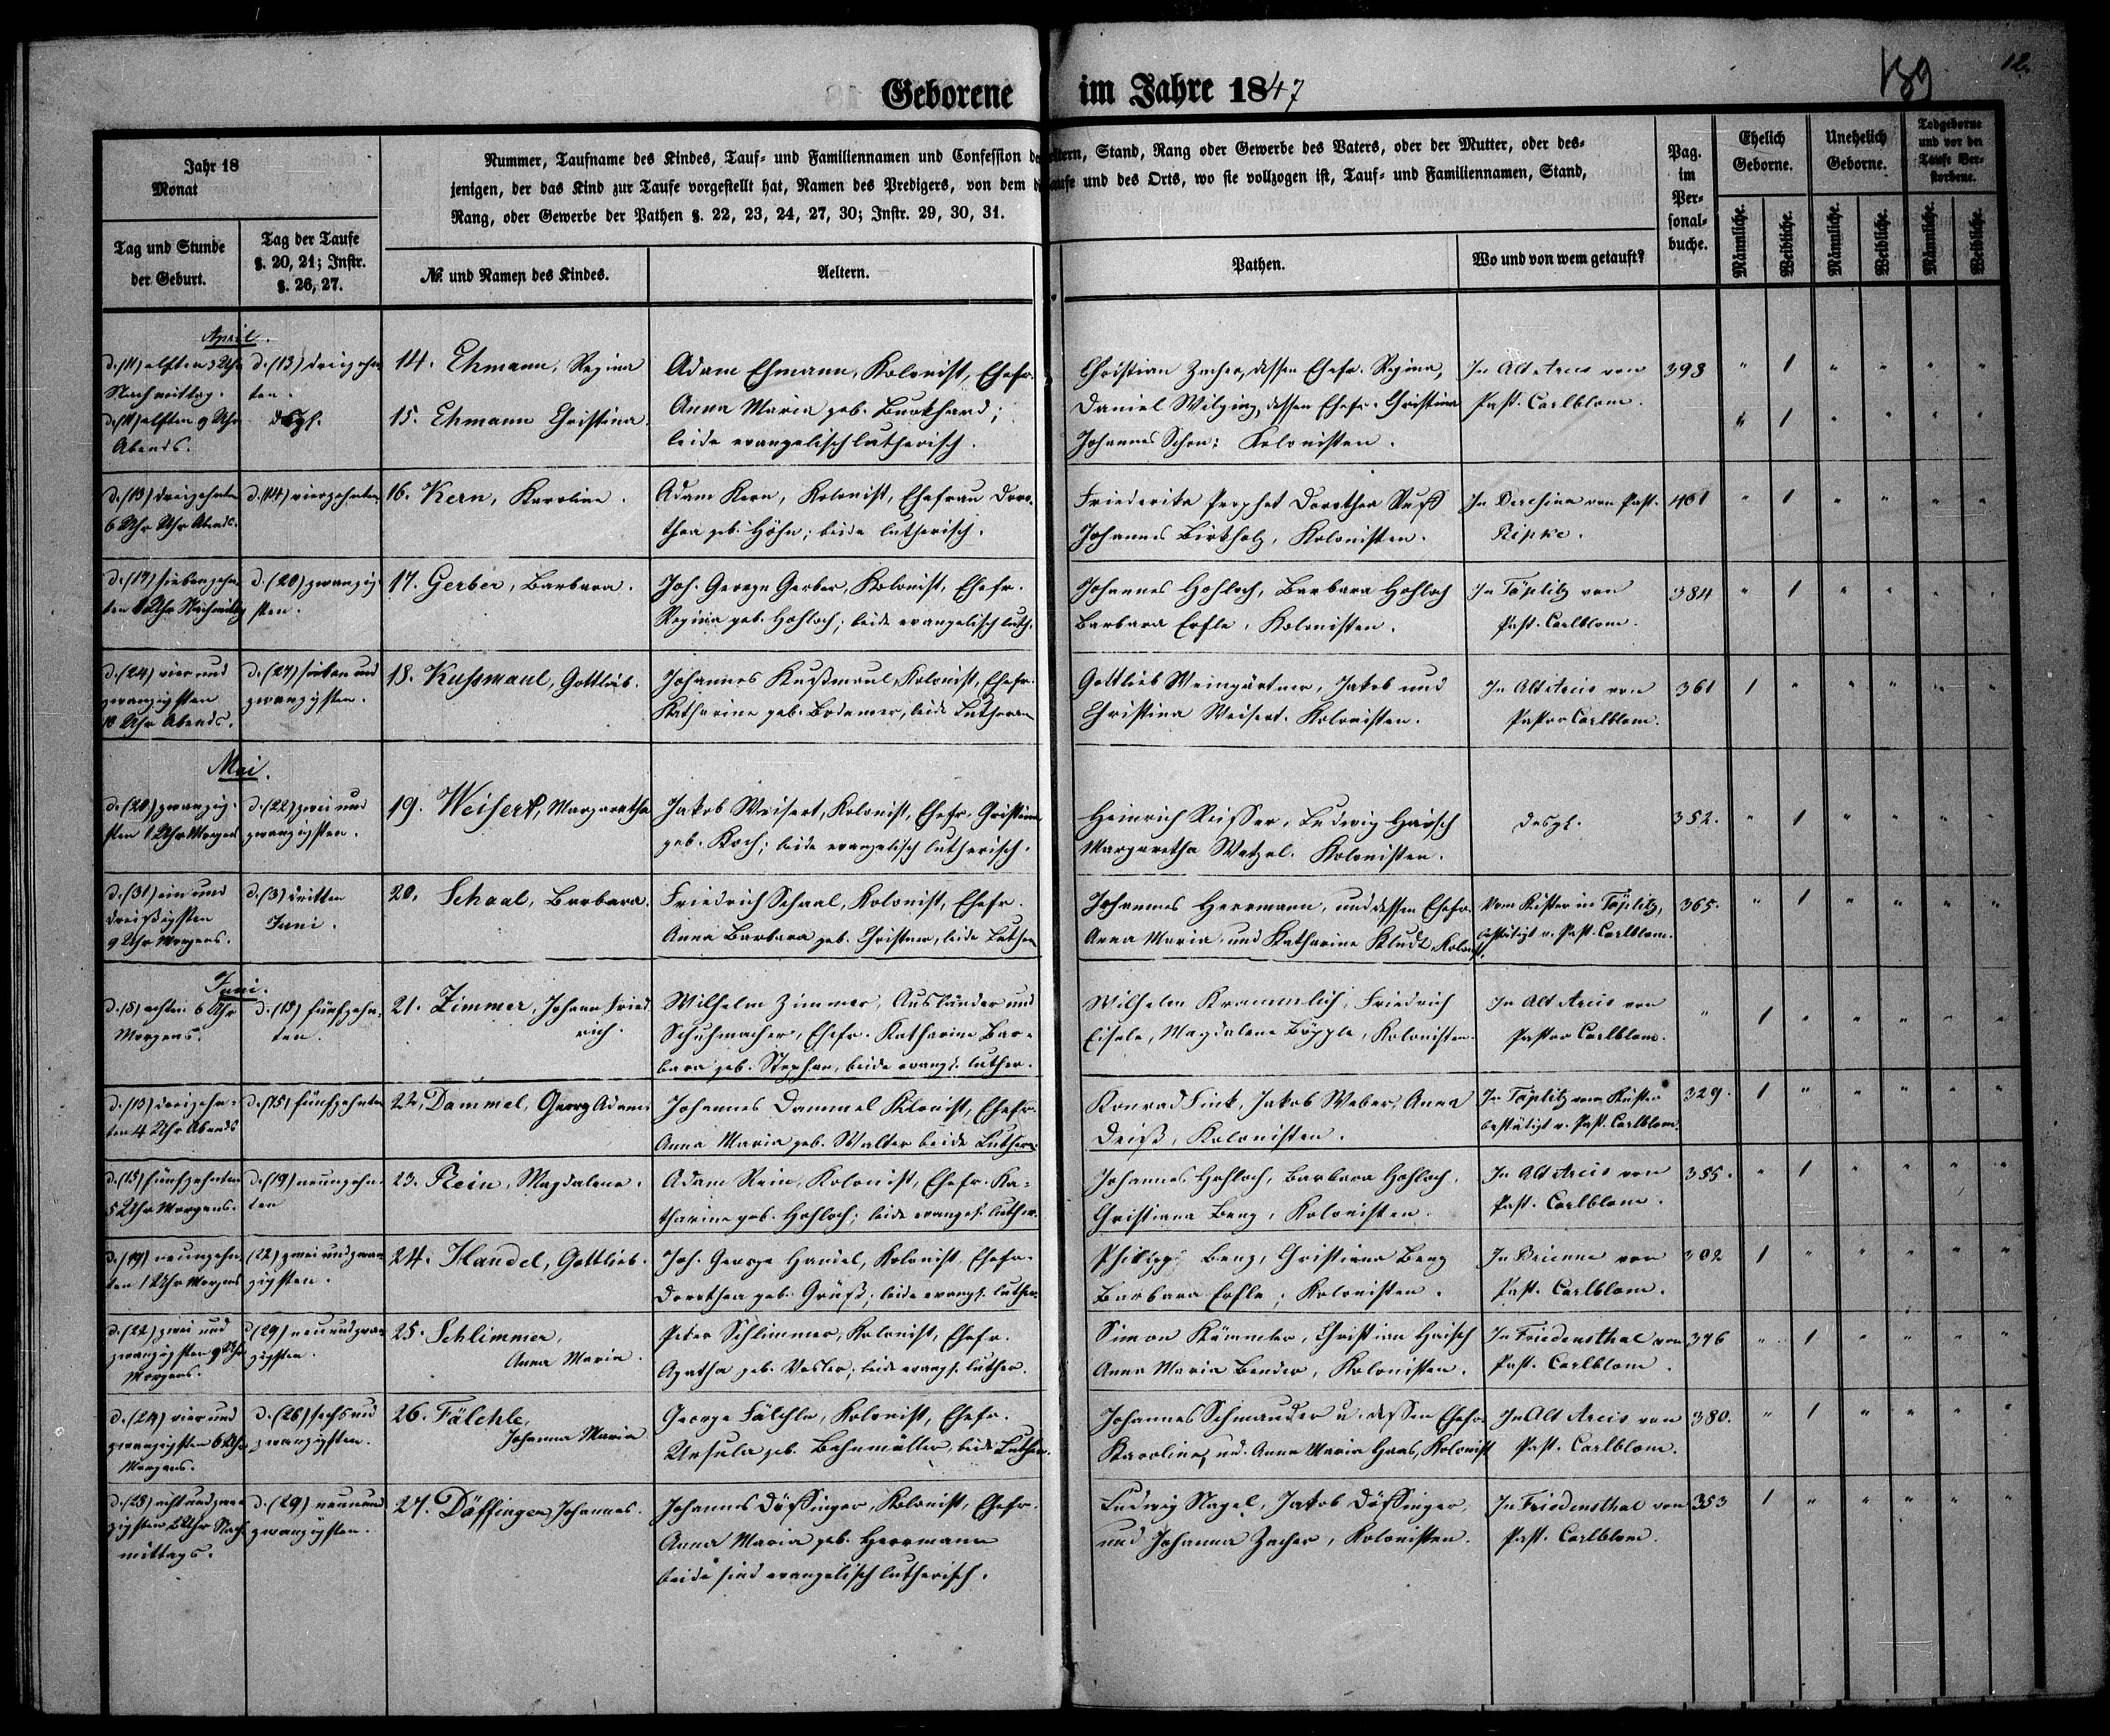 Geborene im Jahre 1847
139
12.
Jahr 18
Monat
Nummer, Taufname des Kindes, Tauf- und Familiennamen und Confession der Aeltern, Stand, Rang oder Gewerbe des Vaters, oder der Mutter, oder des-
jenigen, der das Kind zur Taufe vorgestellt hat, Namen des Predigers, von dem die Taufe und des Orts, wo sie vollzogen ist, Tauf- und Familiennamen, Stand,
Rang, oder Gewerbe der Pathen §. 22, 23, 24, 27, 30; Instr. 29, 30, 31.
Pag.
im
Per-
sonal-
buche.
Ehelich
Geborne.
Unehelich
Geborne.
Todgeborne
und vor der
Taufe Ver-
storbene.
Tag und Stunde
der Geburt.
Tag der Taufe
§. 20, 21; Instr.
§. 26, 27.
№. und Namen des Kindes.
Aeltern.
Pathen.
Wo und von wem getauft?
Männliche.
Weibliche.
Männliche.
Weibliche.
Männliche.
Weibliche.
April.
d. (11) elften 3 Uhr
Nachmittag.
d. (13) dreizehn
ten.
14. Ehmann, Regina
Adam Ehmann, Kolonist, Ehefr.
Anna Maria geb. Burkhard;
beide evangelisch lutherisch.
Christian Zacher, dessen Ehefr. Regina,
Daniel Wilging, dessen Ehefr. Christina
Johannes Schon; Kolonisten.
In Alt Arcis von
Past. Carlblom.
393 " 1 " " " "
d. (11) elften 9 Uhr
Abends.
desgl.
15. Ehmann Christina.
" 1 " " " "
d. (13) dreizehnten
6 Uhr Uhr Abends.
d. (14) vierzehnten
16. Kern, Karoline.
Adam Kern, Kolonist, Ehefrau Doro-
thea geb. Höhn; beide lutherisch.
Friederika Prophet Dorothea Ruff
Johannes Birkholz, Kolonisten.
In Borodino von Past.
Ripke.
401 " 1 " " " "
d. (17) siebenzehn
ten 6 Uhr Nachmittag
d. (20) zwanzig-
sten.
17. Gerber, Barbara.
Joh. George Gerber, Kolonist, Ehefr.
Regina geb. Hohloch; beide evangelisch luth.
Johannes Hohloch, Barbara Hohloch
Barbara Erfle, Kolonisten.
In Töplitz von
Past. Carlblom.
384 " 1 " " " "
d. (24) vier und
zwanzigsten
10 Uhr Abends.
d. (27) sieben und
zwanzigsten.
18. Kussmaul, Gottlieb.
Johannes Kußmaul, Kolonist, Ehefr.
Katharina geb. Bodamer, beide Lutheran
Gottlieb Weingärtner, Jakob und
Christina Weisert. Kolonisten.
In Alt Arcis von
Pastor Carlblom.
361 1 " " " " "
Mai.
d. (20) zwanzig-
sten 1 Uhr Morgens
d. (22) zwei und
zwanzigsten.
19. Weisert, Margaretha
Jakob Weisert, Kolonist, Ehefr. Christina
geb. Koch; beide evangelisch lutherisch.
Heinrich Reisser, Ludwig Haisch
Margaretha Watzel. Kolonisten.
desgl.
352. " 1 " " " "
d. (31) ein und
dreißigsten
9 Uhr Morgens.
d. (3) dritten
Juni.
20. Schaal, Barbara.
Friedrich Schaal, Kolonist, Ehefr.
Anna Barbara geb. Christner, beide Luthera
Johannes Herrmann, und dessen Ehefr.
Anna Maria und Katharina Kludt Kolonist.
Vom Küster in Töplitz,
bestätigt v. Past. Carlblom.
365. " 1 " " " "
Juni.
d. (8) achten 6 Uhr
Morgens.
d. (15) fünfzehn-
ten.
21. Zimmer, Johann Fried
rich.
Wilhelm Zimmer, Ausländer und
Schuhmacher, Ehefr. Katharina Bar-
bara geb. Stephan, beide evangl. luther.
Wilhelm Krämmlich, Friedrich
Eisele, Magdalena Böpple, Kolonisten.
In Alt Arcis von
Pastor Carlblom.
" 1 " " " " "
d. (13) dreizehn-
ten 4 Uhr Abends
d. (15) fünfzehnten
22. Dammel, Georg Adam
Johannes Dammel Kolonist, Ehefr.
Anna Maria geb. Walter beide Luthera
Konrad Fink, Jakob Weber, Anna
Deiß, Kolonisten.
In Töplitz vom Küster
bestätigt v. Past. Carlblom.
329. 1 " " " " "
d. (15) fünfzehnten
5 Uhr Morgens.
d. (19) neunzehn-
ten
23. Rein, Magdalena.
Adam Rein, Kolonist, Ehefr. Ka-
tharina geb. Hohloch; beide evangel. luther.
Johannes Hohloch, Barbara Hohloch,
Christiana Benz, Kolonisten.
In Alt Arcis von
Past. Carlblom.
355. " 1 " " " "
d. (19) neunzehn-
ten 1 Uhr Morgens
(22) zwei und zwan
zigsten.
24. Handel, Gottlieb.
Joh. George Handel, Kolonist, Ehefr.
Dorothea geb. Gräß; beide evangl. luther.
Philipp Benz, Christiana Benz
Barbara Erfle; Kolonisten.
In Brienne von
Past. Carlblom.
302 1 " " " " "
d. (22) zwei und
zwanzigsten 9 Uhr
Morgens.
d. (29) neun und zwan
zigsten.
25. Schlimmer,
Anna Maria.
Peter Schlimmer, Kolonist, Ehefr.
Agatha geb. Vosler; beide evangl. luther.
Simon Kämmler, Christian Haisch
Anna Maria Bender, Kolonisten.
In Friedensthal von
Past. Carlblom.
376 " 1 " " " "
d. (24) vier und
zwanzigsten 6 Uhr
Morgens.
d. (26) sechs und
zwanzigsten.
26. Fälchle,
Johanna Maria
George Fälchle, Kolonist, Ehefr.
Ursula geb. Bahnmüller, beide Luther.
Johannes Schmauder u. dessen Ehefr
Karoline, und Anna Maria Haas, Kolonist
In Alt Arcis von
Past. Carlblom.
380. " 1 " " " "
d. (28) acht und zwan
zigsten 2 Uhr Nach
mittags.
d. (29) neun und
zwanzigsten.
27. Döffinger, Johannes.
Johannes Döffinger, Kolonist, Ehefr.
Anna Maria geb. Herrmann
beide sind evangelisch lutherisch.
Ludwig Nagel, Jakob Döffinger,
und Johanna Zacher, Kolonisten.
In Friedensthal von
Past. Carlblom.
353 1 " " " " "